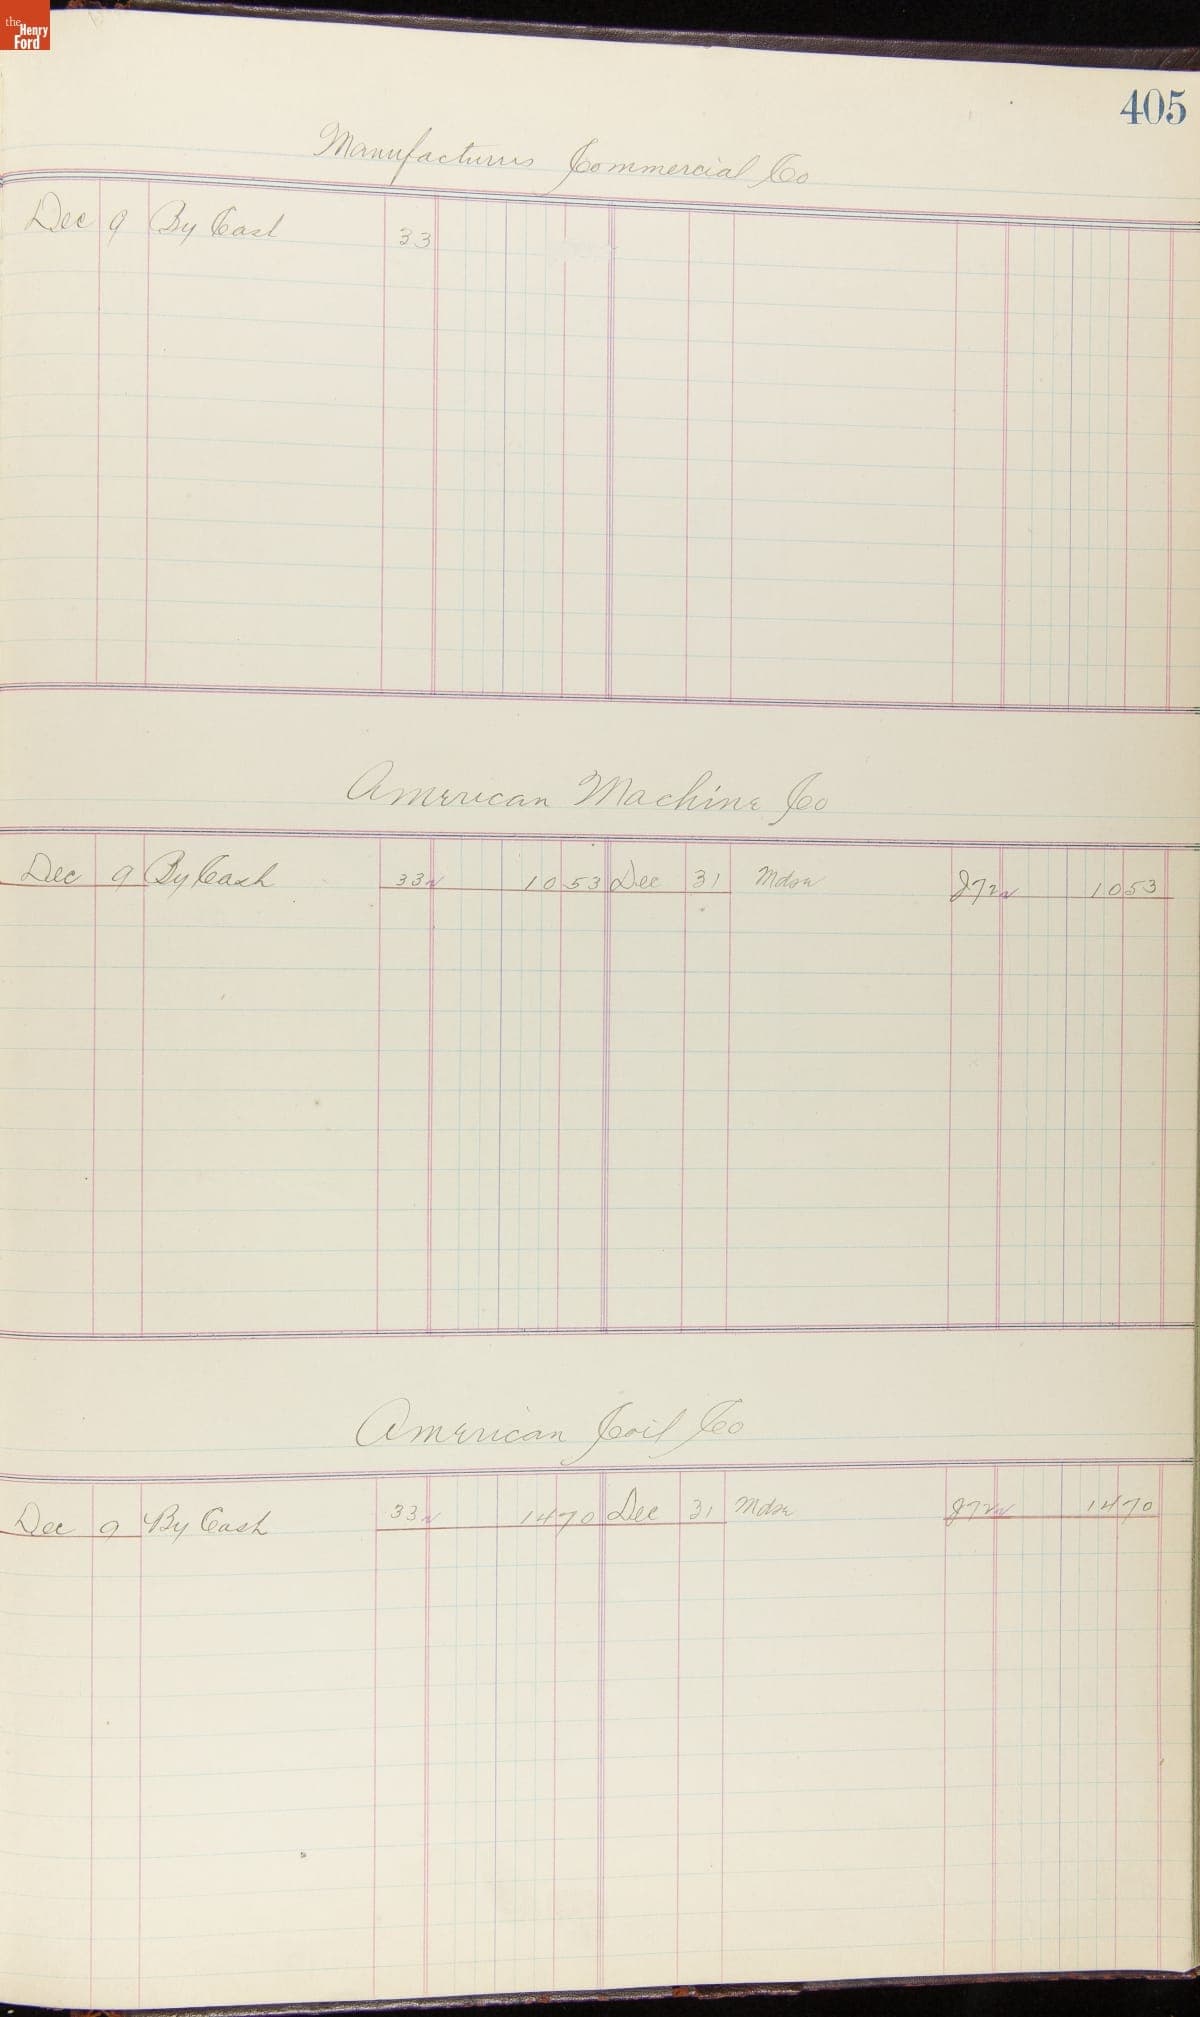 the Henry Ford
405
Manufacturers Commercial Co
Dec 9 By Cash 33
American Machine Co
Dec 9 By Cash 33 10 53 Dec 31 Mdse J72 10 53
American Coil Co
Dec 9 By Cash 33 14 70 Dec 31 Mdse J72 14 70